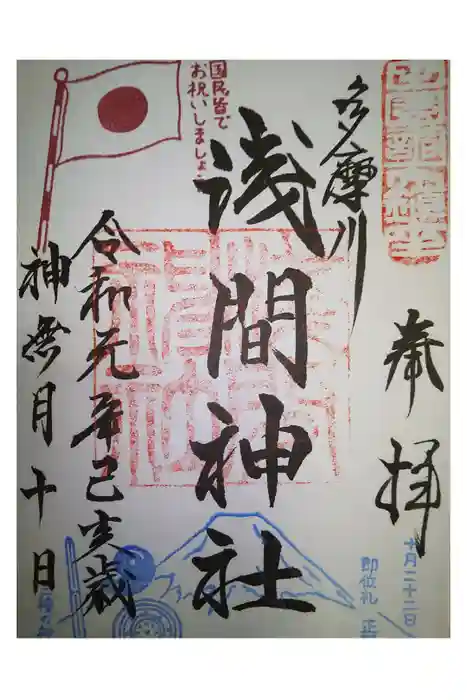 奉拝
十月二十二日
即位礼 正
多摩川
浅間神社
国民皆で
お祝いしましょう
令和元年己亥歳
神無月十日